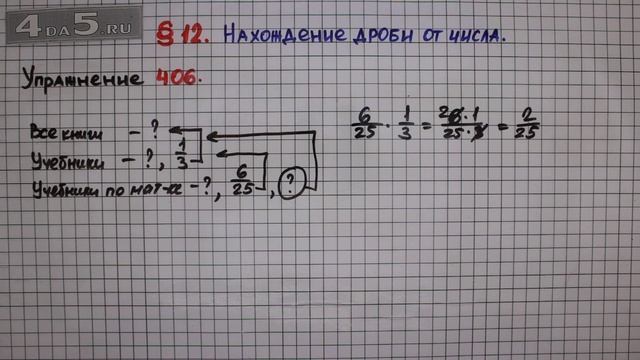 4DA5.RU
§ 12. Нахождение дроби от числа.
Упражнение 406.
Все книги – ?
Учебники – ?, 1/3
Учебники по мат-ке – ?, 6/25, ?
6/25 · 1/3 = 2 6·1/25·3 = 2/25